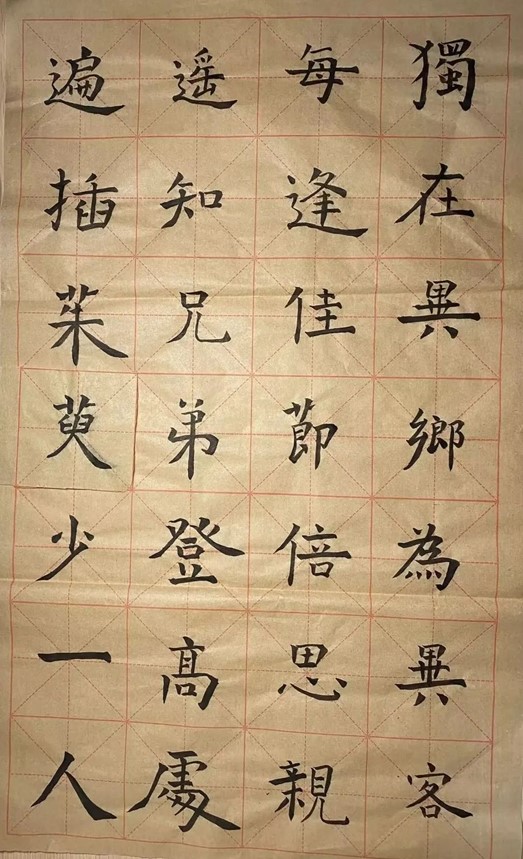 獨在異鄉為異客
每逢佳節倍思親
遥知兄弟登髙處
遍插茱萸少一人